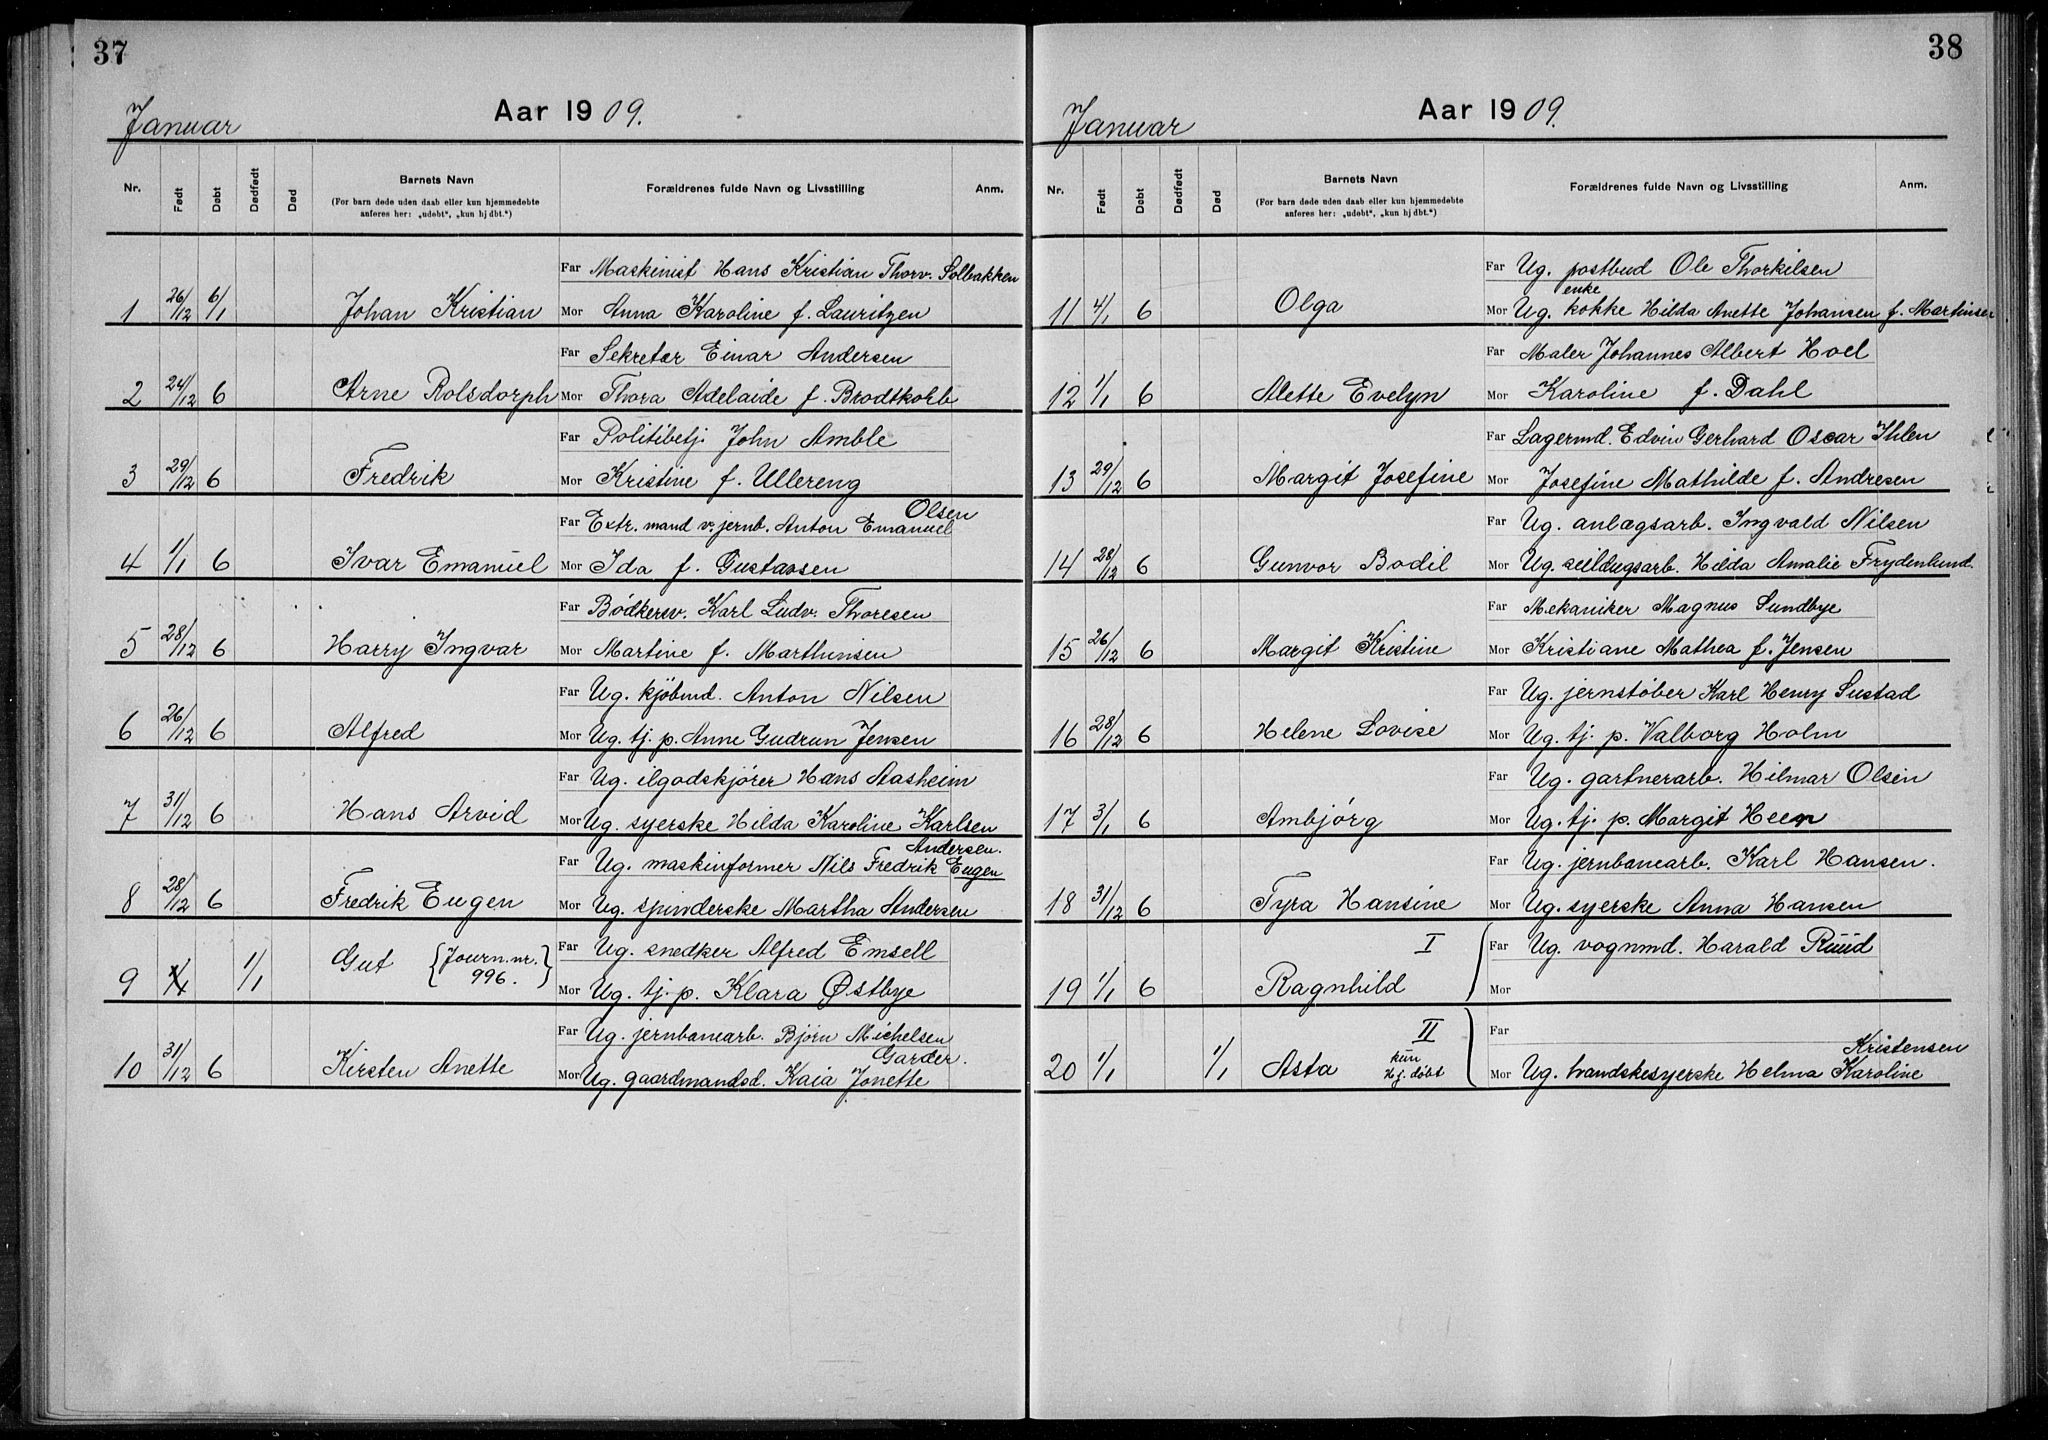 37
Januar
Aar 1909.
Nr. Født Døbt Dødfødt Død Barnets Navn Forældrenes fulde Navn og Livsstilling Anm.
(For barn døde uden daab eller kun hjemmedøbte
anføres her: „udøbt“, „kun hj dbt.“)
Far Maskinist Hans Kristian Thorv. Solbakken
1 26/12 6/1 Johan Kristian Mor Anna Karoline f. Lauritzen
Far Sekretær Einar Andersen
2 24/12 6 Arne Rolsdorph Mor Thora Adelaide f. Brodtkohb
Far Politibetj. John Amble
3 29/12 6 Fredrik Mor Kristine f. Ullereng
Olsen
Far Extr. mand v. jernb. Anton Emanuel
4 1/1 6 Ivar Emanuel Mor Ida f. Gustavsen
Far Bødkersv. Karl Ludv. Thoresen
5 28/12 6 Harry Ingvar Mor Martine f. Marthinsen
Far Ug. kjøbmd. Anton Nilsen
6 26/12 6 Alfred Mor Ug. tj. p. Anne Gudrun Jensen
Far Ug. ilgodskjører Hans Aasheim
7 31/12 6 Hans Arvid Mor Ug. syerske Hilda Karoline Karlsen
Andersen.
Far Ug. maskinformer Nils Fredrik Eugen
8 28/12 6 Fredrik Eugen Mor Ug. spinderske Martha Andersen
Far Ug. snedker Alfred Emsell
9 1/1 Gut {Journ. nr. 996.} Mor Ug. tj. p. Klara Østbye
Far Ug. jernbanearb. Bjørn Michelsen
Garder.
10 31/12 6 Kirsten Anette Mor Ug. gaardmandsd. Kaia Jonette
38
Januar
Aar 1909.
Nr. Født Døbt Dødfødt Død Barnets Navn Forældrenes fulde Navn og Livsstilling Anm.
(For barn døde uden daab eller kun hjemmedøbte
anføres her: „udøbt“, „kun hj dbt.“)
Far Ug. postbud Ole Thorkilsen
enke
11 4/1 6 Olga Mor Ug. kokke Hilda Anette Johansen f. Martinsen
Far Maler Johannes Albert Hoel
12 1/1 6 Alette Evelyn Mor Karoline f. Dahl
Far Lagermd. Edvin Gerhard Oscar Ihlen
13 29/12 6 Margit Josefine Mor Josefine Mathilde f. Andresen
Far Ug. anlægsarb. Ingvald Nilsen
14 28/12 6 Gunvor Bodil Mor Ug. seildugsarb. Hilda Amalie Frydenlund.
Far Mekaniker Magnus Sundbye
15 26/12 6 Margit Kristine Mor Kristiane Mathea f. Jensen
Far Ug. jernstøber Karl Henry Sustad
16 28/12 6 Helene Lovise Mor Ug. tj. p. Valborg Holm
Far Ug. gartnerarb. Hilmar Olsen
17 3/1 6 Ambjørg Mor Ug. tj. p. Margit Heen
Far Ug. jernbanearb. Karl Hansen.
18 31/12 6 Tyra Hansine Mor Ug. syerske Anna Hansen
I Far Ug. vognmd. Harald Ruud
19 1/1 6 Ragnhild Mor
II Far
Kristensen
20 1/1 1/1 Asta kun Hj. døbt Mor Ug. handskesyerske Helma Karoline